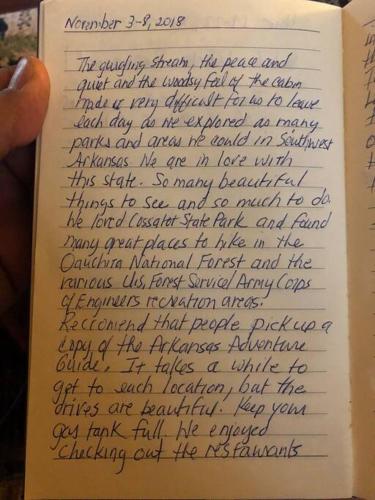 November 3-8, 2018
The gurgling stream, the peace and
quiet and the woodsy feel of the cabin
made it very difficult for us to leave
each day as we explored as many
parks and areas we could in Southwest
Arkansas. We are in love with
this state. So many beautiful
things to see and so much to do.
We loved Cossatot State Park and found
many great places to hike in the
Oauchita National Forest and the
various U.S. Forest Service/Army Corps
of Engineers recreation areas.
Reccomend that people pick up a
copy of the Arkansas Adventure
Guide. It takes a while to
get to each location, but the
drives are beautiful. Keep your
gas tank full. We enjoyed
checking out the restaurants